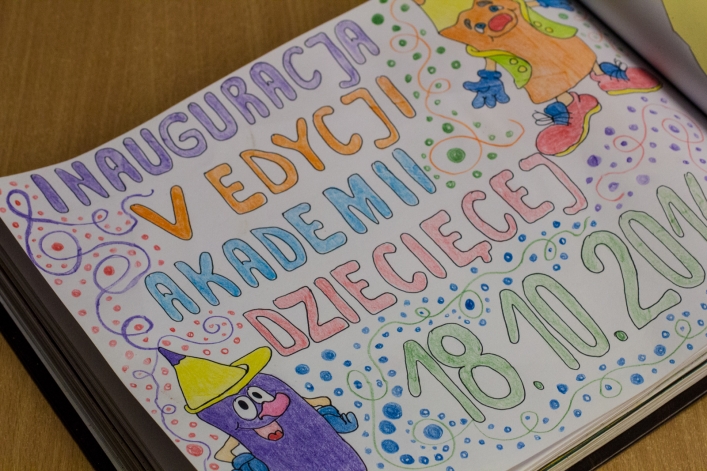 INAUGURACJA
V EDYCJI
AKADEMII
DZIECIĘCEJ
18.10.201